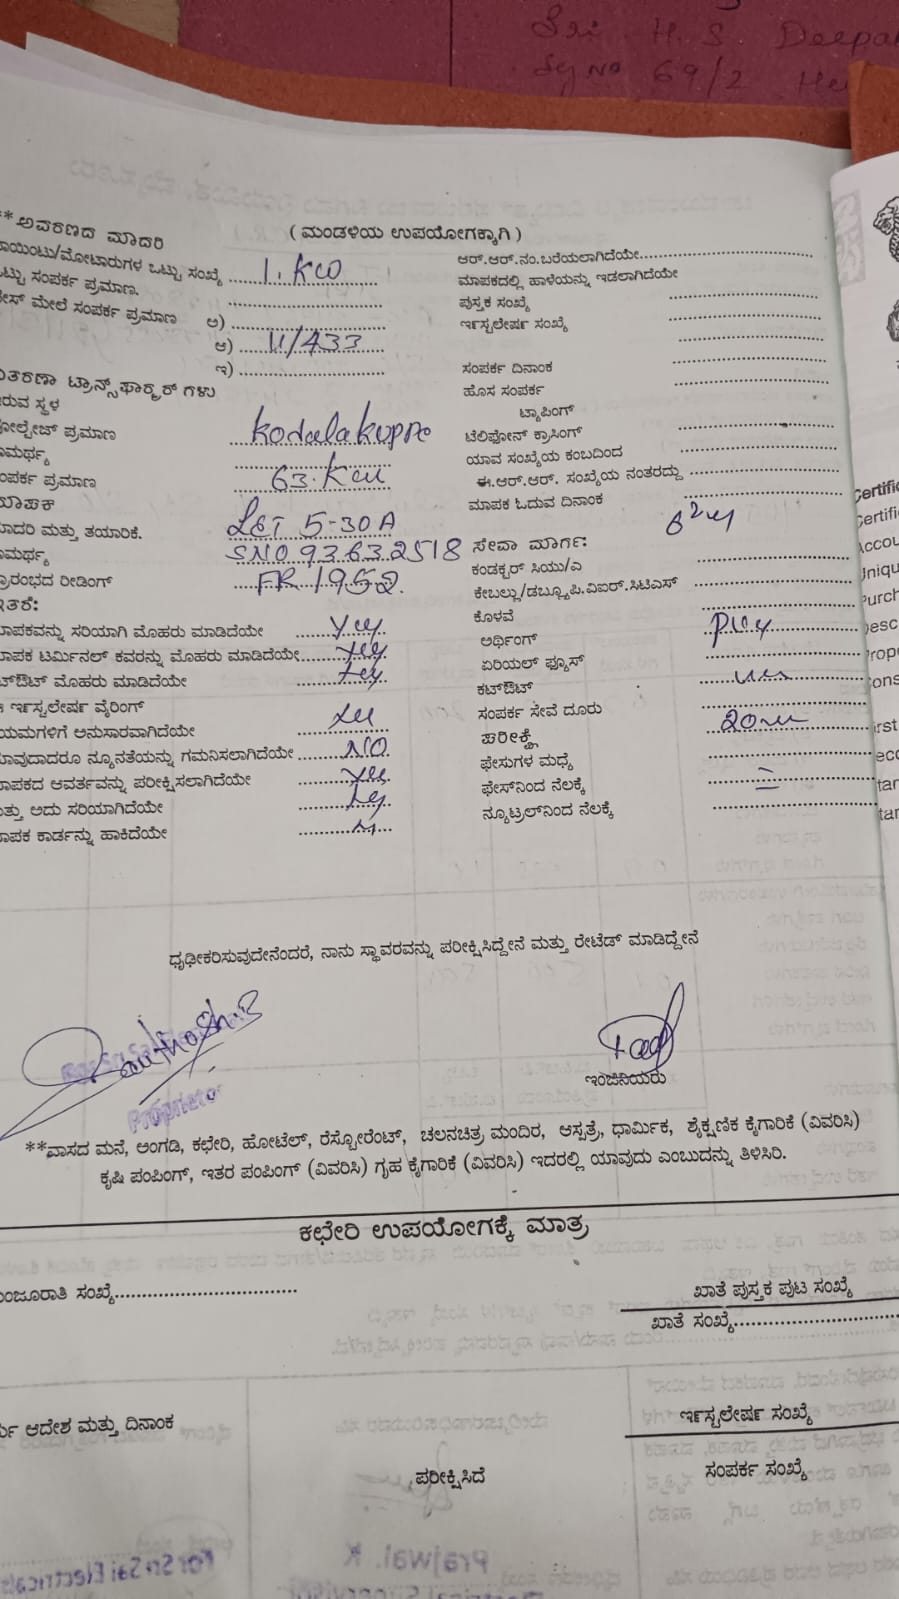 Sri. H. S. Deepa
Sy No 69/2 He
** ಅವರಣದ ಮಾದರಿ
( ಮಂಡಳಿಯ ಉಪಯೋಗಕ್ಕಾಗಿ )
ಾಯಿಂಟು/ಮೋಟಾರುಗಳ ಒಟ್ಟು ಸಂಖ್ಯೆ 1. KW
ಒಟ್ಟು ಸಂಪರ್ಕ ಪ್ರಮಾಣ.
ೇಸ್ ಮೇಲೆ ಸಂಪರ್ಕ ಪ್ರಮಾಣ ಅ)
ಆ) 11/433
ಇ)
ತರಣಾ ಟ್ರಾನ್ಸ್‌ಫಾರ್‍ಮರ್ ಗಳು
ರುವ ಸ್ಥಳ
ೋಲ್ಟೇಜ್ ಪ್ರಮಾಣ Kodalakuppe
ಾಮರ್ಥ್ಯ
ಂಪರ್ಕ ಪ್ರಮಾಣ 63.
ಮಾಪಕ
ಾದರಿ ಮತ್ತು ತಯಾರಿಕೆ. L&T 5-30A
ಾಮರ್ಥ್ಯ SNO 93632518
್ರಾರಂಭದ ರೀಡಿಂಗ್ FR 1952.
ಇತರೆ:
ಾಪಕವನ್ನು ಸರಿಯಾಗಿ ಮೊಹರು ಮಾಡಿದೆಯೇ yes
ಾಪಕ ಟರ್ಮಿನಲ್ ಕವರನ್ನು ಮೊಹರು ಮಾಡಿದೆಯೇ yes
ಟ್‌ಔಟ್ ಮೊಹರು ಮಾಡಿದೆಯೇ yes
ಈ ಇನ್‌ಸ್ಟಲೇಷನ್ ವೈರಿಂಗ್
ಯಮಗಳಿಗೆ ಅನುಸಾರವಾಗಿದೆಯೇ yes
ಾವುದಾದರೂ ನ್ಯೂನತೆಯನ್ನು ಗಮನಿಸಲಾಗಿದೆಯೇ NO
ಾಪಕದ ಆವರ್ತವನ್ನು ಪರೀಕ್ಷಿಸಲಾಗಿದೆಯೇ yes
ತ್ತು ಅದು ಸರಿಯಾಗಿದೆಯೇ yes
ಾಪಕ ಕಾರ್ಡನ್ನು ಹಾಕಿದೆಯೇ
ಆರ್.ಆರ್.ನಂ.ಬರೆಯಲಾಗಿದೆಯೇ
ಮಾಪಕದಲ್ಲಿ ಹಾಳೆಯನ್ನು ಇಡಲಾಗಿದೆಯೇ
ಪುಸ್ತಕ ಸಂಖ್ಯೆ
ಇನ್‌ಸ್ಟಲೇಷನ್ ಸಂಖ್ಯೆ
ಸಂಪರ್ಕ ದಿನಾಂಕ
ಹೊಸ ಸಂಪರ್ಕ
ಟ್ಯಾಪಿಂಗ್
ಟೆಲಿಫೋನ್ ಕ್ರಾಸಿಂಗ್
ಯಾವ ಸಂಖ್ಯೆಯ ಕಂಬದಿಂದ
ಈ.ಆರ್.ಆರ್. ಸಂಖ್ಯೆಯ ನಂತರದ್ದು
ಮಾಪಕ ಓದುವ ದಿನಾಂಕ
ಸೇವಾ ಮಾರ್ಗ:
ಕಂಡಕ್ಟರ್ ಸಿಯು/ಎ
ಕೇಬಲ್ಲು/ಡಬ್ಲ್ಯೂಪಿ.ವಿಐರ್.ಸಿಟಿಎಸ್
ಕೊಳವೆ
ಅರ್ಥಿಂಗ್
ಏರಿಯಲ್ ಫ್ಯೂಸ್
ಕಟ್‌ಔಟ್
ಸಂಪರ್ಕ ಸೇವೆ ದೂರು
ಪರೀಕ್ಷೆ 20
ಫೇಸುಗಳ ಮಧ್ಯೆ
ಫೇಸ್‌ನಿಂದ ನೆಲಕ್ಕೆ
ನ್ಯೂಟ್ರಲ್‌ನಿಂದ ನೆಲಕ್ಕೆ
ಧೃಢೀಕರಿಸುವುದೇನೆಂದರೆ, ನಾನು ಸ್ಥಾವರವನ್ನು ಪರೀಕ್ಷಿಸಿದ್ದೇನೆ ಮತ್ತು ರೇಟೆಡ್ ಮಾಡಿದ್ದೇನೆ
Proprietor
ಇಂಜಿನಿಯರು
**ವಾಸದ ಮನೆ, ಅಂಗಡಿ, ಕಛೇರಿ, ಹೋಟೆಲ್, ರೆಸ್ಟೋರೆಂಟ್, ಚಲನಚಿತ್ರ ಮಂದಿರ, ಆಸ್ಪತ್ರೆ, ಧಾರ್ಮಿಕ, ಶೈಕ್ಷಣಿಕ ಕೈಗಾರಿಕೆ (ವಿವರಿಸಿ)
ಕೃಷಿ ಪಂಪಿಂಗ್, ಇತರ ಪಂಪಿಂಗ್ (ವಿವರಿಸಿ) ಗೃಹ ಕೈಗಾರಿಕೆ (ವಿವರಿಸಿ) ಇದರಲ್ಲಿ ಯಾವುದು ಎಂಬುದನ್ನು ತಿಳಿಸಿರಿ.
ಕಛೇರಿ ಉಪಯೋಗಕ್ಕೆ ಮಾತ್ರ
ಂಜೂರಾತಿ ಸಂಖ್ಯೆ
ಖಾತೆ ಪುಸ್ತಕ ಪುಟ ಸಂಖ್ಯೆ
ಖಾತೆ ಸಂಖ್ಯೆ
ಆದೇಶ ಮತ್ತು ದಿನಾಂಕ
ಇನ್‌ಸ್ಟಲೇಷನ್ ಸಂಖ್ಯೆ
ಪರೀಕ್ಷಿಸಿದೆ
ಸಂಪರ್ಕ ಸಂಖ್ಯೆ
Certific
Certifi
Accou
Uniqu
Purch
Desc
Prope
Cons
First
Seco
Star
Star